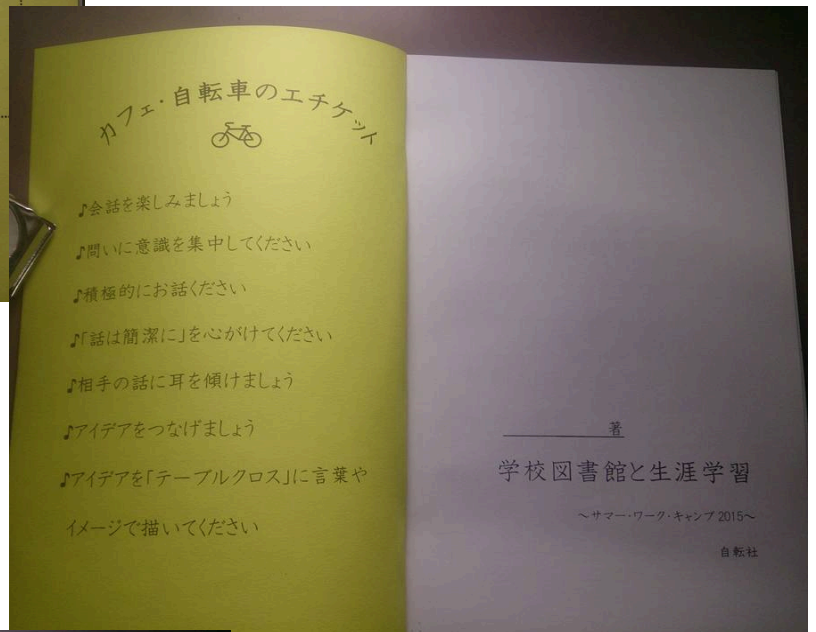 カフェ・自転車のエチケット
♪会話を楽しみましょう
♪問いに意識を集中してください
♪積極的にお話ください
♪「話は簡潔に」を心がけてください
♪相手の話に耳を傾けましょう
♪アイデアをつなげましょう
♪アイデアを「テーブルクロス」に言葉や
イメージで描いてください
著
学校図書館と生涯学習
～サマー・ワーク・キャンプ2015～
自転社